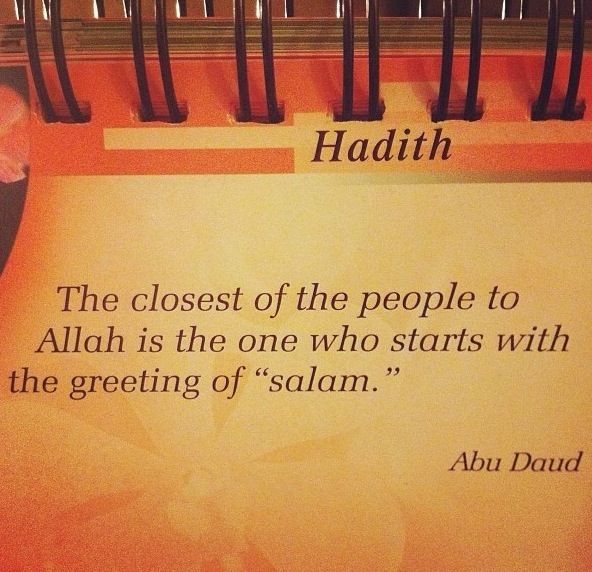 Hadith
The closest of the people to
Allah is the one who starts with
the greeting of “salam.”
Abu Daud